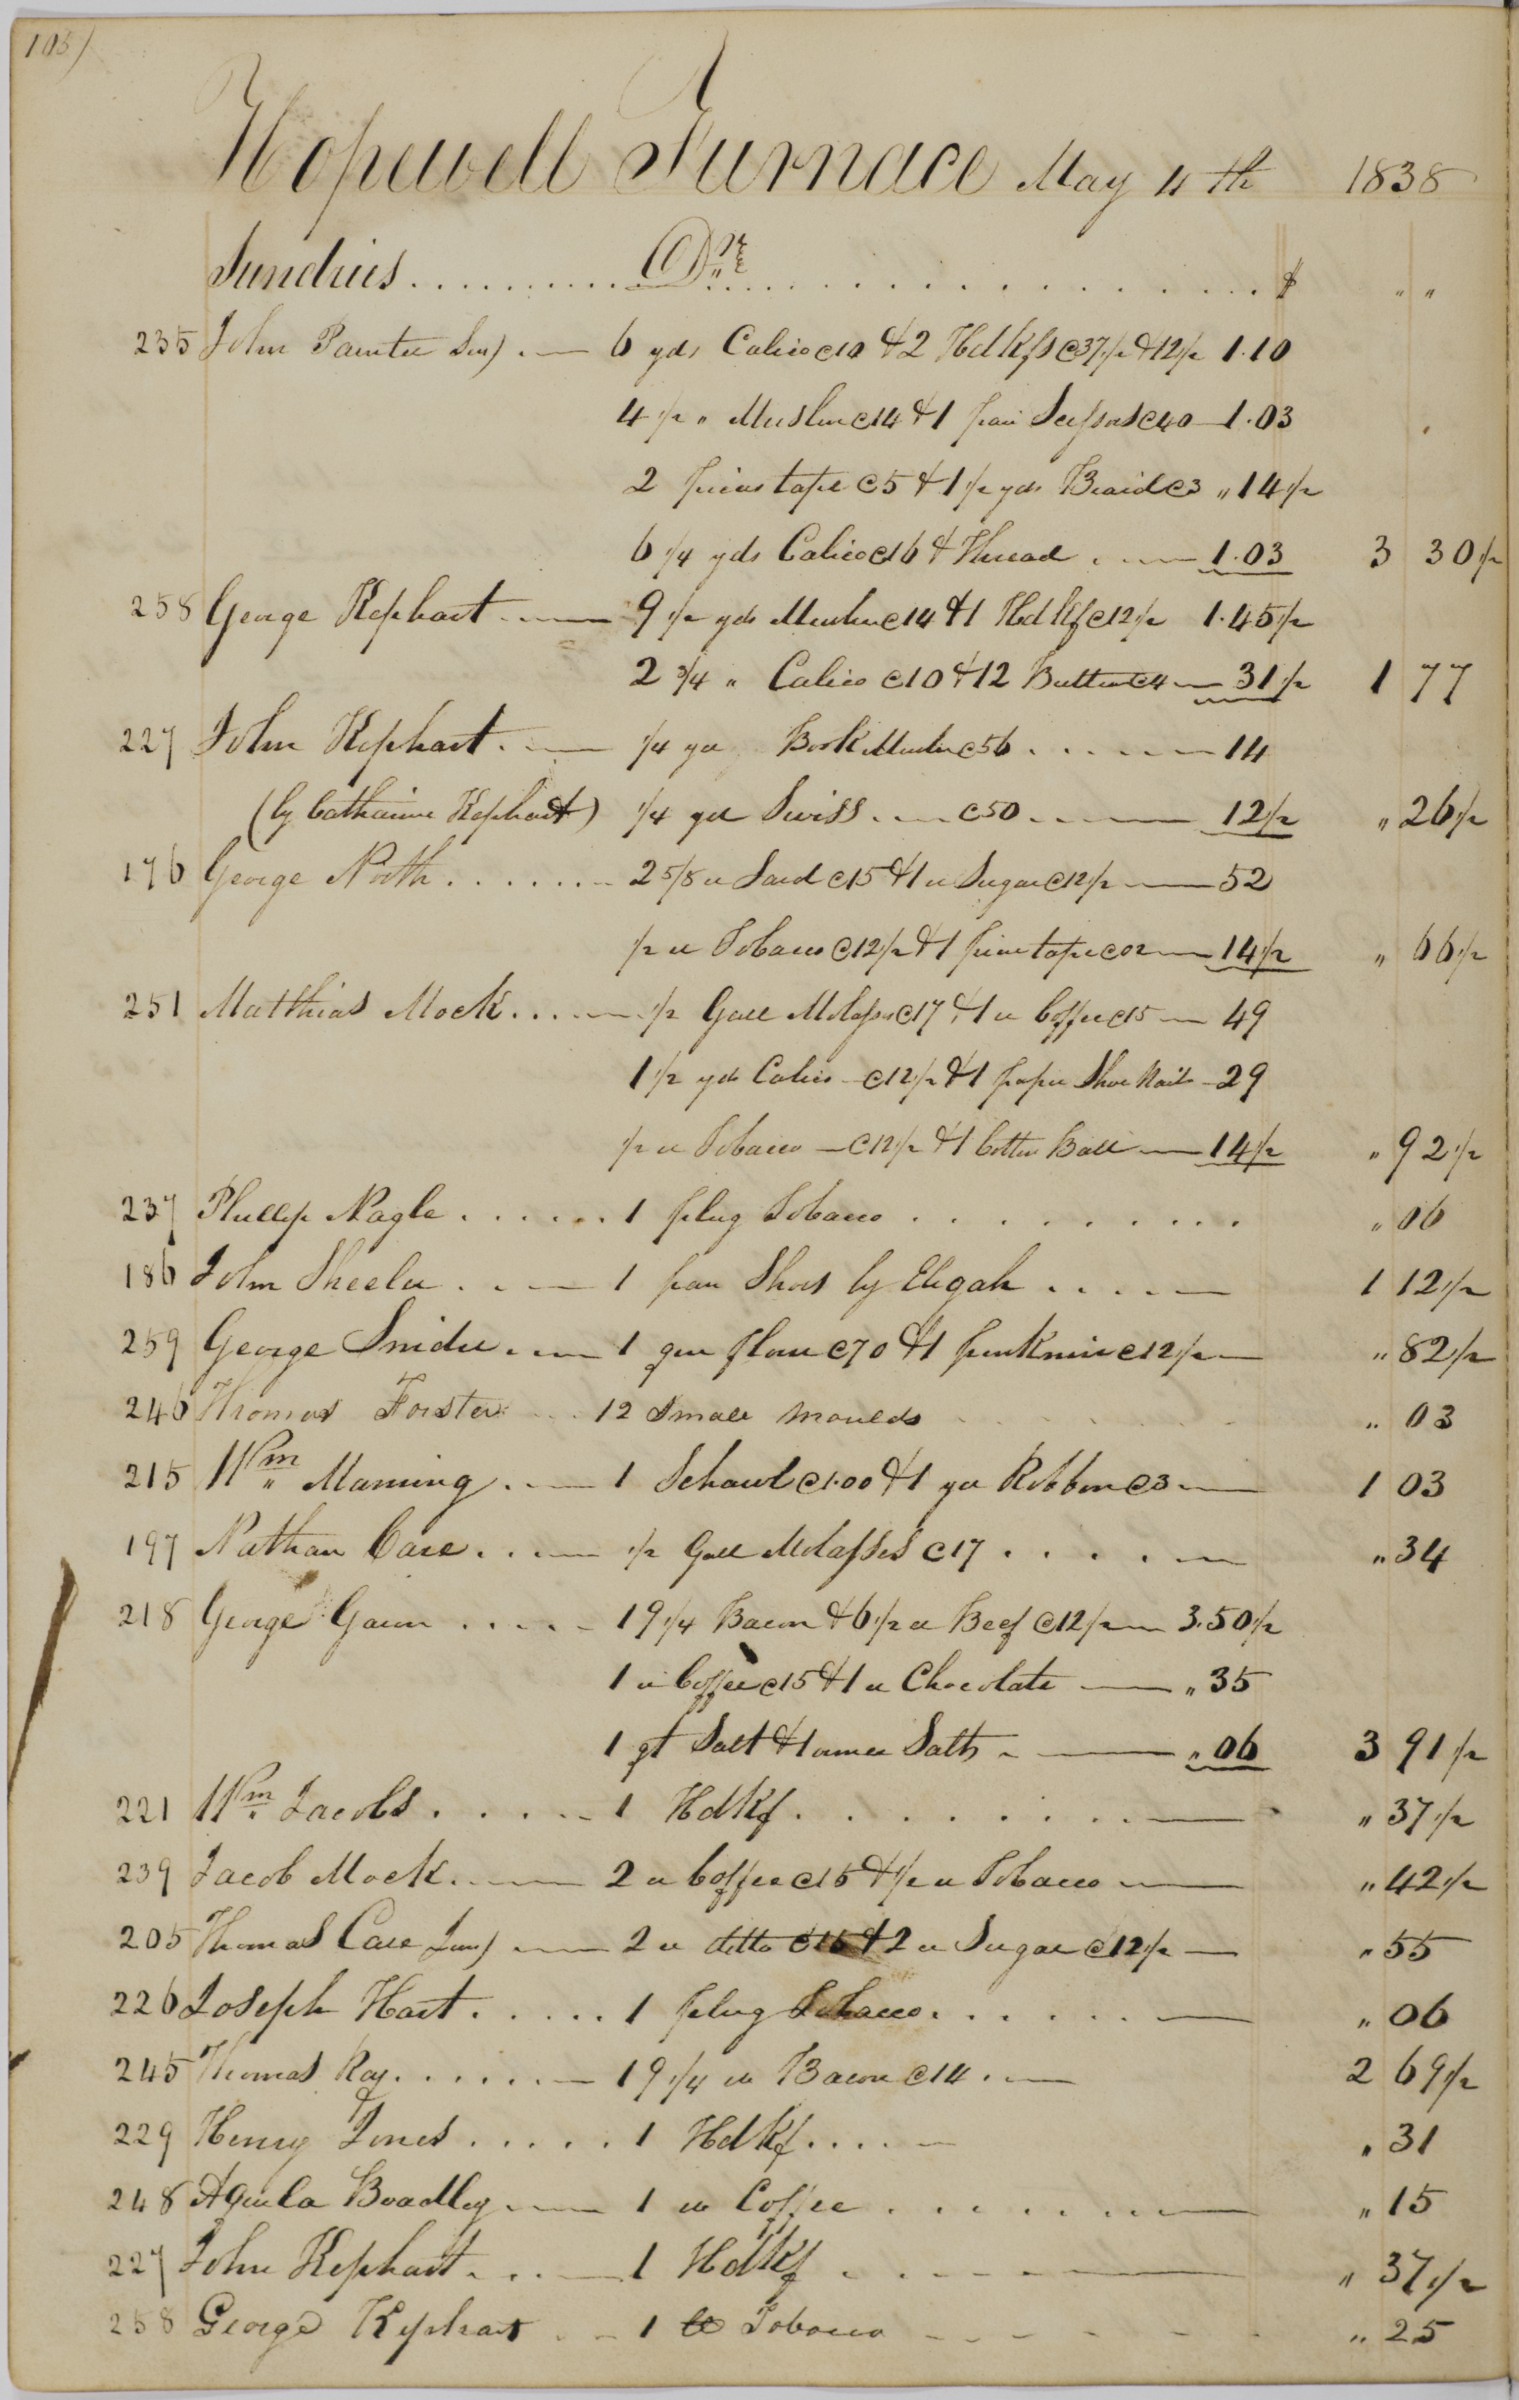 105)
Hopewell Furnace May 4th 1838
Sundries ........... Drs ........... $ " "
235 John Painter Sen) .— 6 yds Calico @10 & 2 Hdkfs @37½ & 12½ 1.10
4½ " Muslin @14 & 1 pair Scissors @40 — 1.03
2 pieces tape @5 & 1½ yds Braid @3 " 14½
6¼ yds Calico @16 & Thread . — 1.03 3 30½
258 George Kephart .— 9½ yds Muslin @14 & 1 Hdkf @12½ 1.45½
2¾ " Calico @10 & 12 Buttons @4 — 31½ 1 77
227 John Kephart . — ¼ yd Book Muslin @56 ..... — 14
(by Catharine Kephart) ¼ yd Swiss . — @50 . — 12½ " 26½
176 George North ....... 2 5/8 lb Lard @15 & 1 lb Sugar @12½ — 52
½ lb Tobacco @12½ & 1 piece tape @02 — 14½ " 66½
251 Matthias Mock .... — ½ Gall Molasses @17 & 1 lb Coffee @15 — 49
1½ yds Calico — @12½ & 1 paper Shoe Nails — 29
½ lb Tobacco — @12½ & 1 Cotton Ball — 14½ " 92½
237 Phillip Nagle ...... 1 plug Tobacco .......... " 06
186 John Sheeler . . — 1 pair Shoes by Eligah .... — 1 12½
259 George Snider . — 1 qur flour @70 & 1 penknive @12½ — " 82½
246 Thomas Forster ... 12 Small moulds " 03
215 Wm Manning . — 1 Schawl @1.00 & 1 yd Ribbon @3 — 1 03
197 Nathan Care . . — ½ Gall Molasses @17 ..... — " 34
218 George Gawn ..... 19¼ Bacon & 6½ lb Beef @12½ — 3.50½
1 lb Coffee @15 & 1 lb Chocolate — " 35
1 qt Salt & 1 ounce Salts - — " 06 3 91½
221 Wm Jacobs ..... 1 Hdkf ........ — " 37½
239 Jacob Mock . — 2 lb Coffee @15 & ½ lb Tobacco — " 42½
205 Thomas Care Jun) . — 2 lb ditto @15 & 2 lb Sugar @12½ — " 55
226 Joseph Hart ..... 1 plug Tobacco ...... — " 06
245 Thomas Ray ...... — 19¼ lb Bacon @14 . — 2 69½
229 Henry Jones ..... 1 Hdkf .... — " 31
248 Aquila Boadley . — 1 lb Coffee ....... — " 15
227 John Kephart . . . — 1 Hdkf ..... — " 37½
258 George Kephart . . 1 lb Tobacco - - - - - " 25